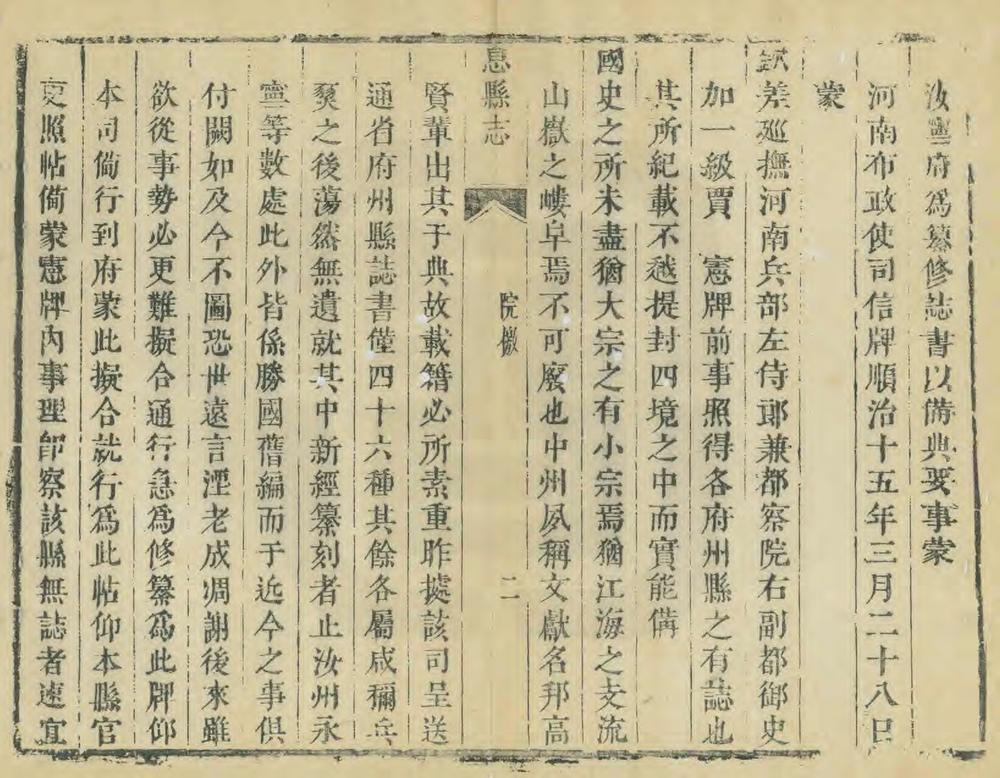 汝寧府爲纂修誌書以備典要事蒙
河南布政使司信牌順治十五年三月二十八日
蒙
欽差廵撫河南兵部左侍郎兼都察院右副都御史
加一級賈　憲牌前事照得各府州縣之有誌也
其所紀載不越提封四境之中而實能備
國史之所未盡猶大宗之有小宗焉猶江海之支流
山嶽之嶁阜焉不可廢也中州夙稱文獻名邦高
息縣志
院檄
二
賢輩出其于典故載籍必所素重昨據該司呈送
通省府州縣誌書僅四十六種其餘各屬咸彌兵
燹之後蕩然無遺就其中新經纂刻者止汝州永
寧等數處此外皆係勝國舊編而于近今之事俱
付闕如及今不圖恐世遠言湮老成凋謝後來雖
欲從事勢必更難擬合通行急爲修纂爲此牌仰
本司備行到府蒙此擬合就行爲此帖仰本縣官
吏照帖備蒙憲牌內事理卽察該縣無誌者速宜